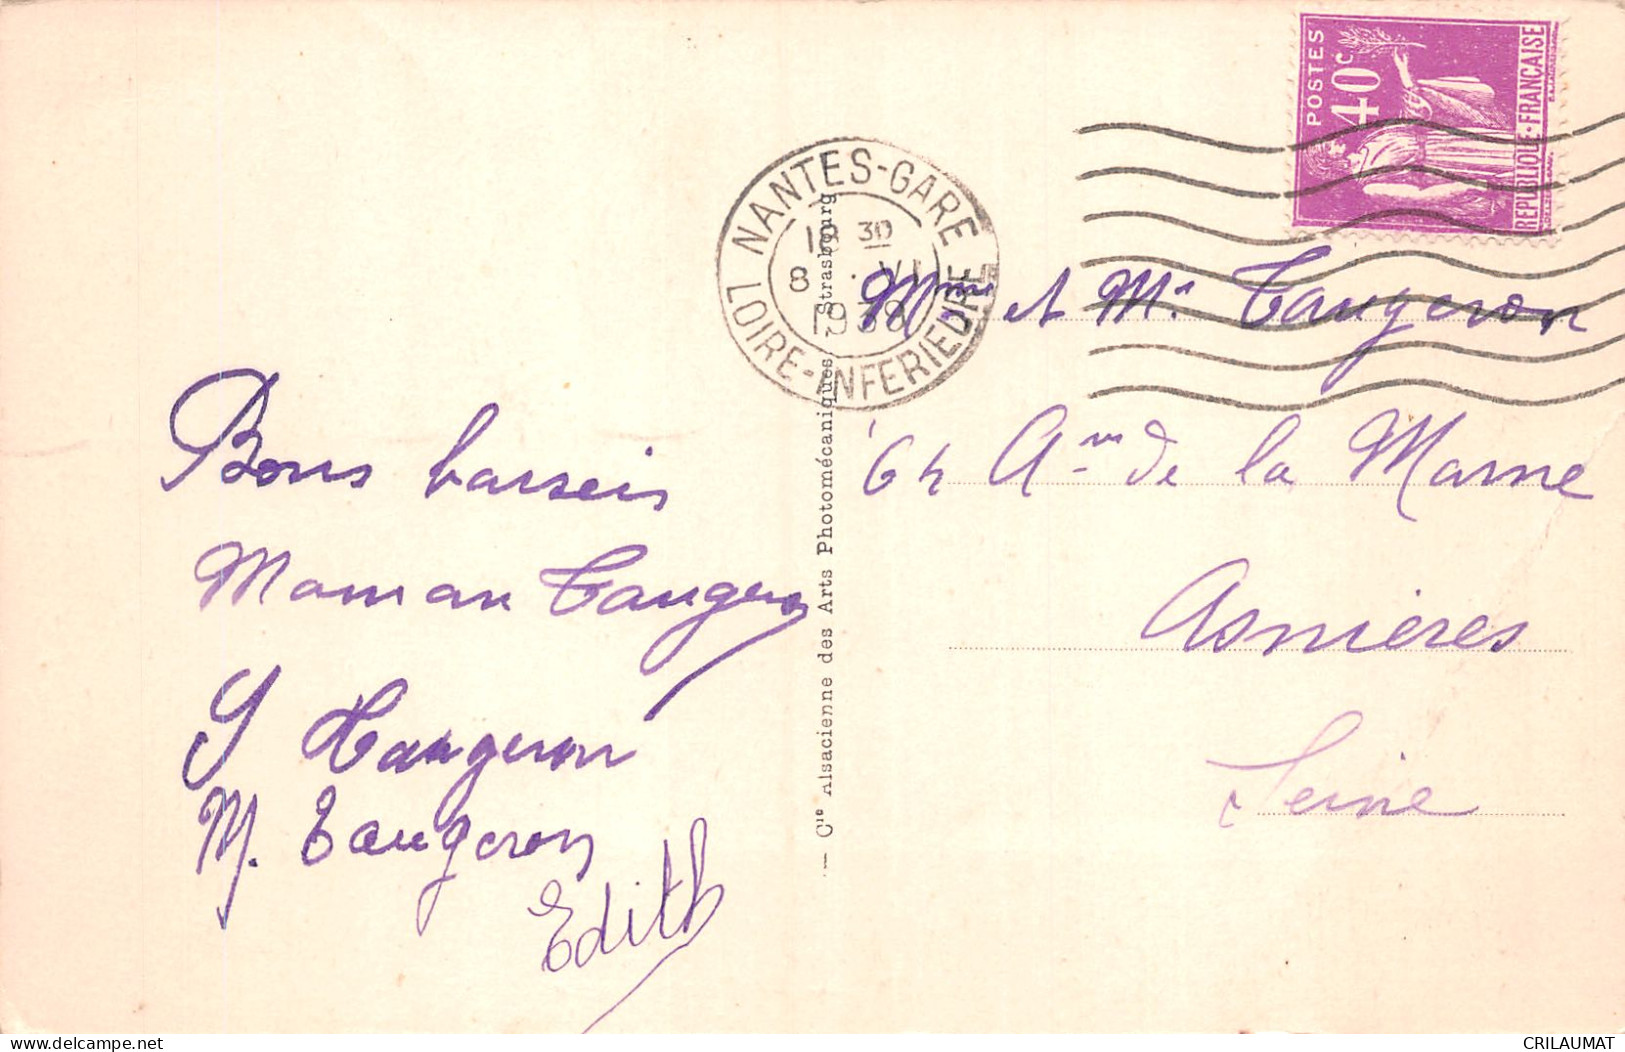 POSTES
40c
REPUBLIQUE·FRANÇAISE
NANTES-GARE
30
8 · VI
1938
LOIRE-INFERIEURE
Mme et Mr Taugeron
64 Aue de la Marne
Asnieres
Seine
Bons baisers
Maman Taugeron
S Taugeron
M. Taugeron
Edith
— Cie Alsacienne des Arts Photomécaniques, Strasbourg
delcampe.net
CRILAUMAT